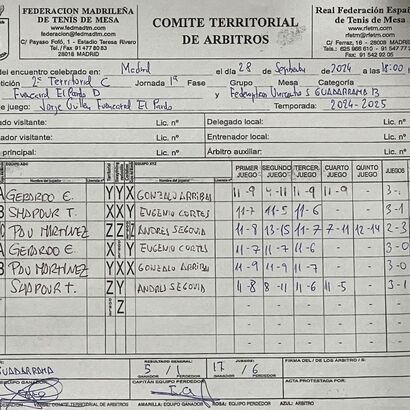 FEDERACION MADRILEÑA
DE TENIS DE MESA
www.fedmadtm.com
C/ Payaso Fofó, 1 - Estadio Teresa Rivero
Tel./Fax 91 477 80 83
28018 MADRID
COMITE TERRITORIAL
DE ARBITROS
Real Federación Española
de Tenis de Mesa
www.rfetm.com
C/ Ferraz, 16 - 28008 MADRID
Fax: 91 542 92 05
encuentro celebrado en: Madrid el día 28 de Septiembre de 2024 a las 18:00
2ª Territorial C Jornada 1ª Fase Grupo Mesa Categoría
Funcectral El Pardo D y GUADARRAMA B
de juego: Jorge Funcectral El Pardo Temporada: 2024-2025
Lic. nº Delegado local: Lic. nº
visitante: Lic. nº Entrenador local: Lic. nº
principal: Lic. nº Árbitro auxiliar: Lic. nº
EQUIPO ABC EQUIPO XYZ PRIMER JUEGO SEGUNDO JUEGO TERCER JUEGO CUARTO JUEGO QUINTO JUEGO JUEGOS
A GERARDO E. Y Y X GONZALO ARRIBAS 11-9 4-11 11-9 11-9 3-1
B SHAPOUR T. X X Y EUGENIO CORTES 11-7 11-5 11-6 3-0
C PAU MARTINEZ Z Z Z ANDRES SEGOVIA 11-8 13-15 11-7 7-11 12-14 2-3
A GERARDO E. Y Y X EUGENIO CORTES 11-7 11-7 11-6 3-0
B PAU MARTINEZ X X Y GONZALO ARRIBAS 11-9 11-9 11-7 3-0
SHAPOUR T. Z Z ANDRES SEGOVIA 11-8 8-11 11-6 11-5 3-1
GUADARRAMA
RESULTADO GENERAL 5 / 1
GANADOR PERDEDOR
JUEGOS: 17 / 6
GANADOR PERDEDOR
FIRMA DEL / DE LOS ARBITRO/S:
EQUIPO GANADOR
CAPITÁN EQUIPO PERDEDOR
ACTA PROTESTADA POR:
COMITE TERRITORIAL DE ARBITROS AMARILLA: EQUIPO GANADOR ROSA: EQUIPO PERDEDOR AZUL: ARBITRO